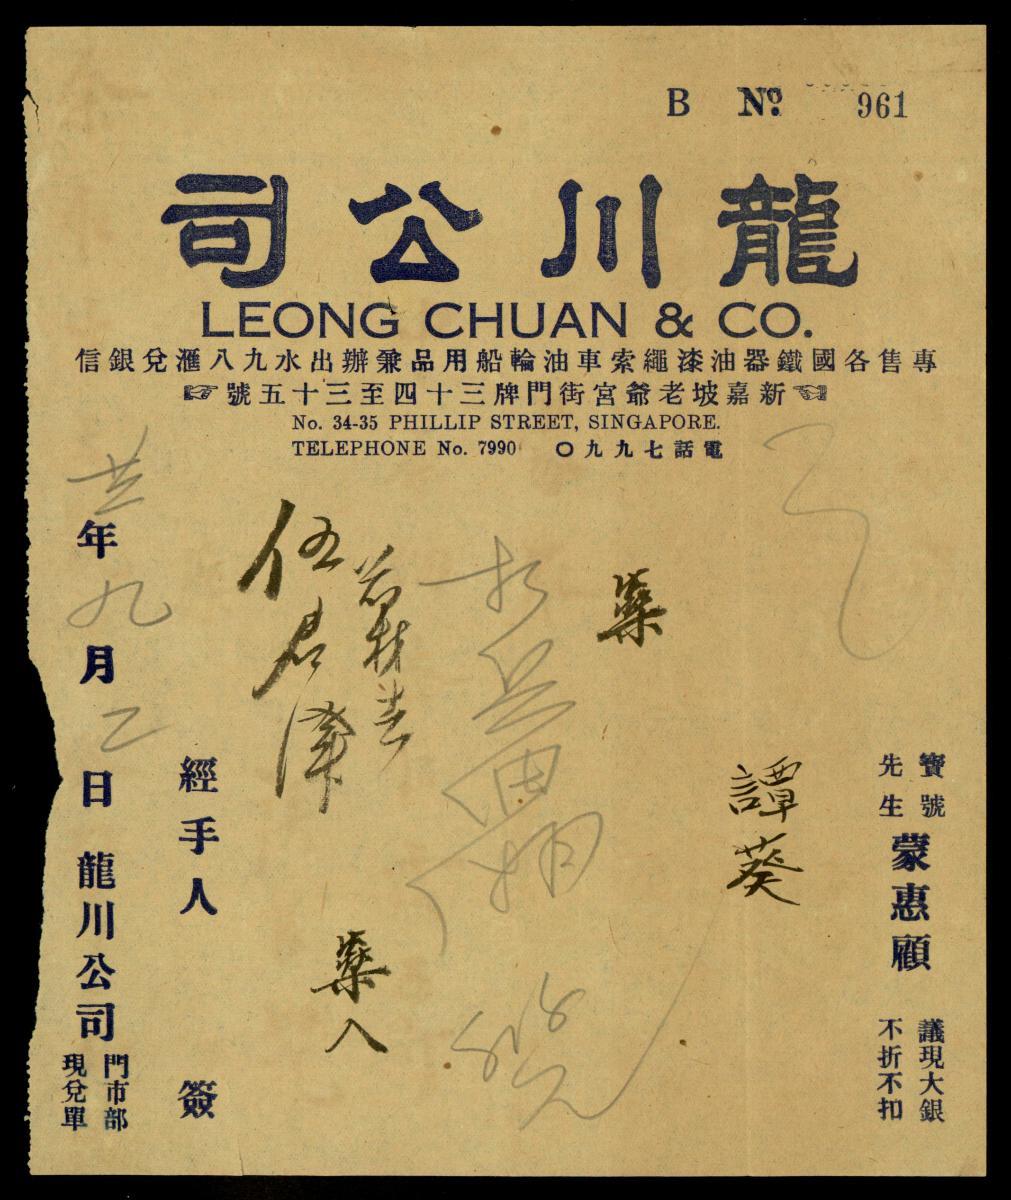 B № 961
龍川公司
LEONG CHUAN & CO.
專售各國鐵器油漆繩索車油輪船用品兼辦出水九八滙兌銀信
新嘉坡老爺宮街門牌三十四至三十五號
No. 34-35 PHILLIP STREET, SINGAPORE.
TELEPHONE No. 7990 電話七九九〇
寶號
先生
蒙惠顧
議現大銀
不折不扣
譚葵
藥
伍君澤
藥入
經手人 簽
年九月乙日 龍川公司
門市部
現兌單